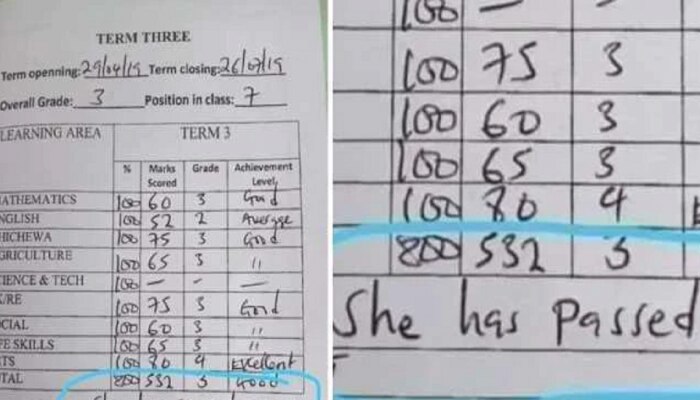 TERM THREE
Term openning: 29/04/19 Term closing: 26/07/19
Overall Grade: 3 Position in class: 7
LEARNING AREA TERM 3
% Marks Scored Grade Achievement Level
ATHEMATICS 100 60 3 Good
NGLISH 100 52 2 Average
HICHEWA 100 75 3 Good
GRICULTURE 100 65 3 "
CIENCE & TECH 100 — — —
/RE 100 75 3 Good
CIAL 100 60 3 "
FE SKILLS 100 65 3 "
TS 100 80 4 Excellent
TAL 800 532 3 Good
100 —
100 75 3
100 60 3
100 65 3
100 80 4
800 532 3
She has passed